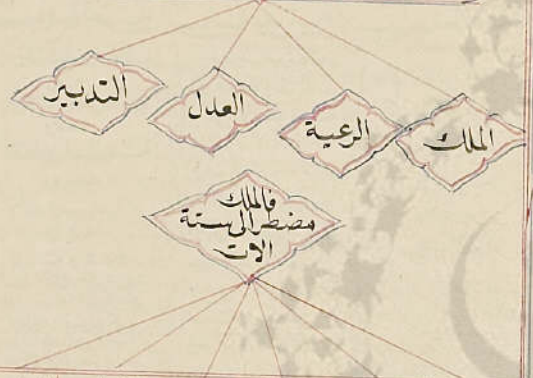 الملك
الرعية
العدل
التدبير
فالملك
مضطر الى ستة
الات